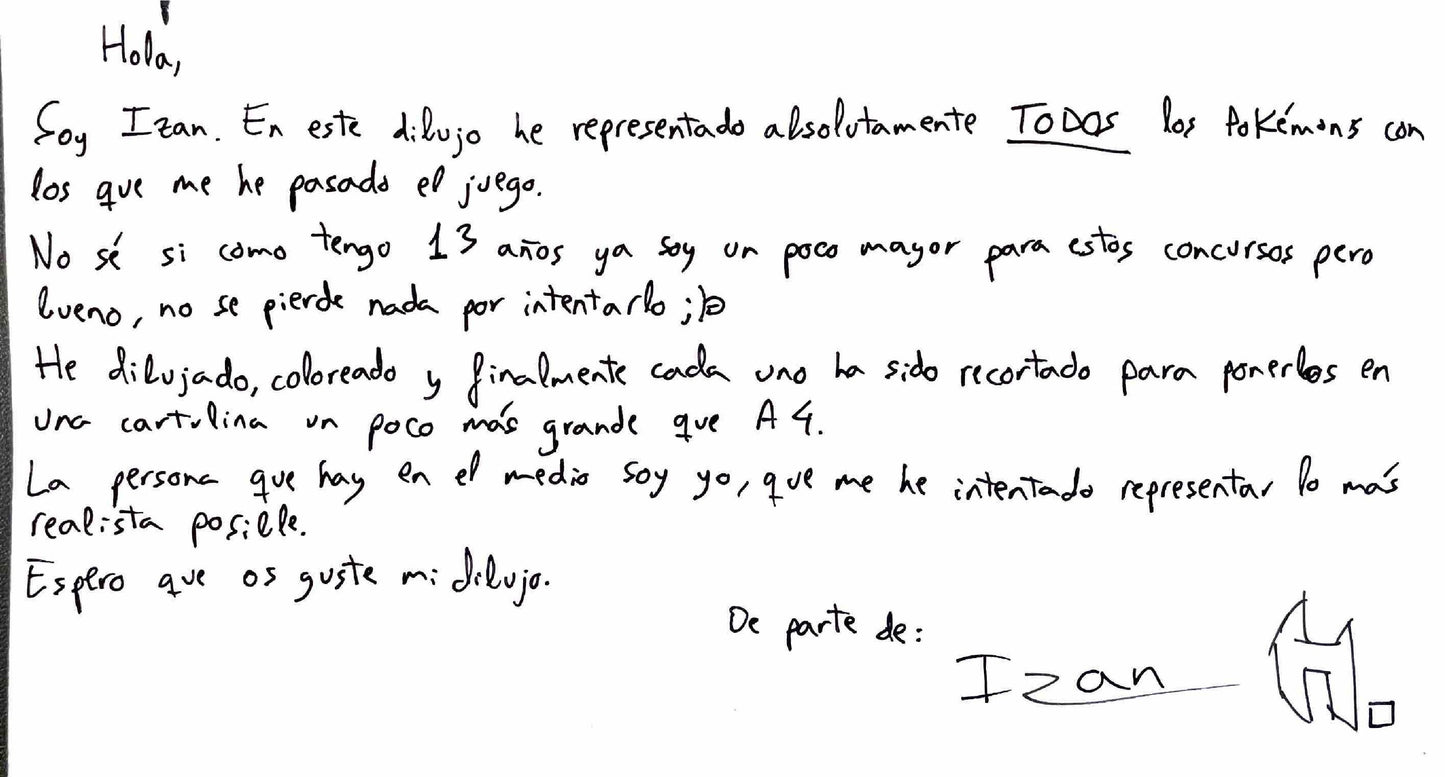 Hola,
Soy Izan. En este dibujo he representado absolutamente TODOS los Pokémons con
los que me he pasado el juego.
No sé si como tengo 13 años ya soy un poco mayor para estos concursos pero
bueno, no se pierde nada por intentarlo ;)
He dibujado, coloreado y finalmente cada uno ha sido recortado para ponerlos en
una cartulina un poco más grande que A4.
La persona que hay en el medio soy yo, que me he intentado representar lo más
realista posible.
Espero que os guste mi dibujo.
De parte de:
Izan H.